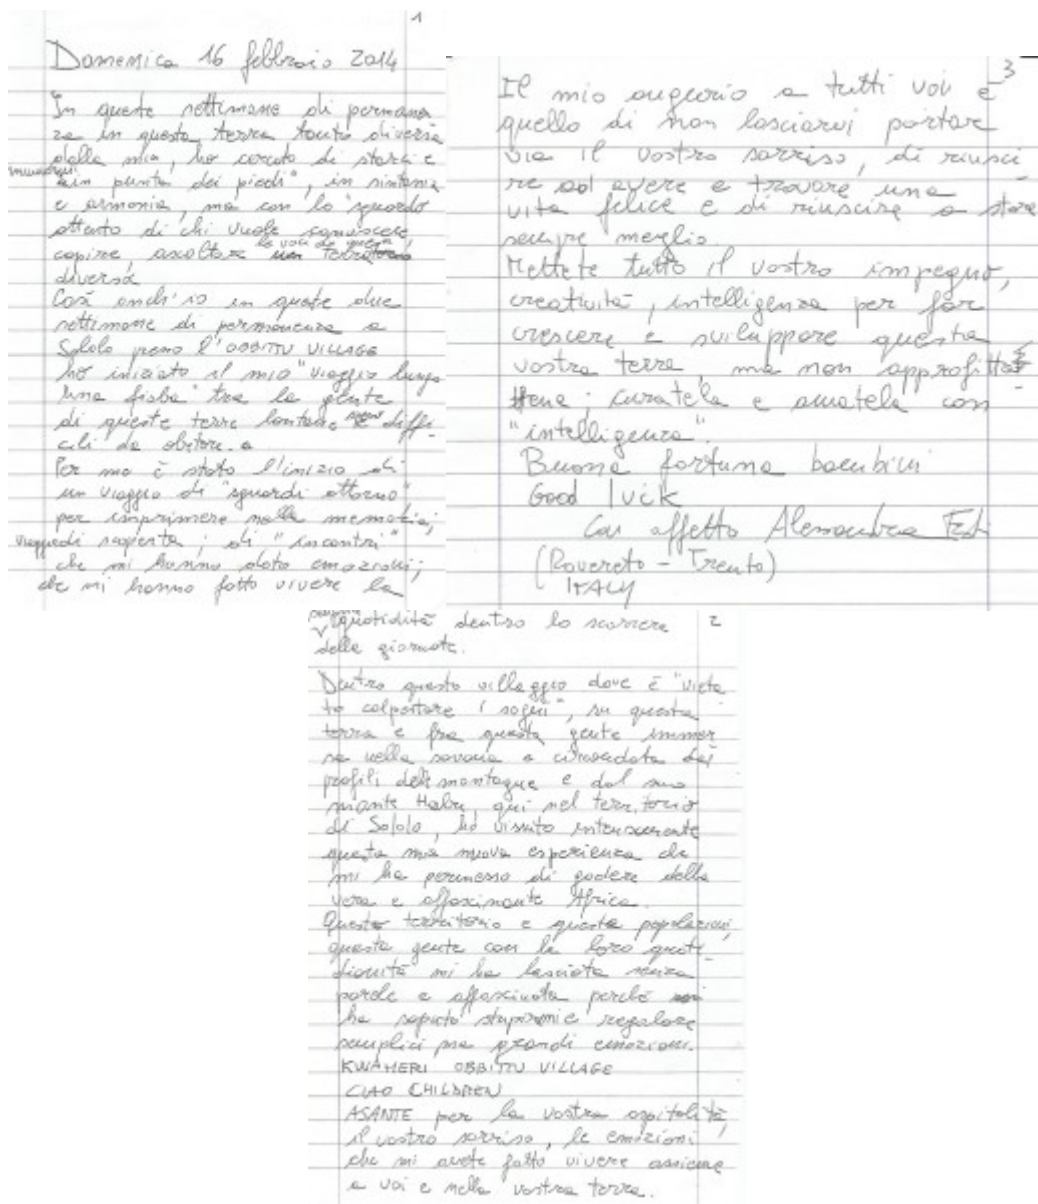 1
Domenica 16 febbraio 2014
In queste settimane di permanen
za in questa terra tanto diversa
dalla mia, ho cercato di starci e
muovermi "in punta dei piedi", in sintonia
e armonia, ma con lo sguardo
attento di chi vuole conoscere
capire, ascoltare le voci di questa terra
diversa
Così anch'io in queste due
settimane di permanenza a
Sololo presso l'OBBITU VILLAGE
ho iniziato il mio "viaggio lungo
una fiaba" tra la gente
di queste terre lontane e diffi-
cili da abitare.
Per me è stato l'inizio di
un viaggio di "sguardi attorno",
per imprimere nella memoria;
viaggio di scoperta; di "incontri"
che mi hanno dato emozioni;
che mi hanno fatto vivere la
2
quotidità dentro lo scorrere
delle giornate.
Dentro questo villaggio dove è "vieta
to calpestare i sogni", su questa
terra e fra questa gente immer
sa nella savana e circondata dai
profili delle montagne e dal suo
monte Habu, qui nel territorio
di Sololo, ho vissuto intensamente
questa mia nuova esperienza che
mi ha permesso di godere della
vera e affascinante Africa.
Questo territorio e questa popolazioni,
questa gente con la loro quoti-
dianità mi ha lasciata senza
parole e affascinata perché
ha saputo stupirmi e regalare
semplici ma grandi emozioni.
KWAHERI OBBITTU VILLAGE
CIAO CHILDREN
ASANTE per la vostra ospitalità,
il vostro sorriso, le emozioni
che mi avete fatto vivere assieme
a voi e nella vostra terra.
3
Il mio augurio a tutti voi è
quello di non lasciarvi portare
via il vostro sorriso, di riusci
re ad avere e trovare una
vita felice e di riuscire a stare
sempre meglio.
Mettete tutto il vostro impegno,
creatività, intelligenza per far
crescere e sviluppare questa
vostra terra, ma non approfitta
tene; curatela e amatela con
"intelligenza".
Buona fortuna bambini
Good luck
Con affetto Alessandra
(Rovereto - Trento)
ITALY